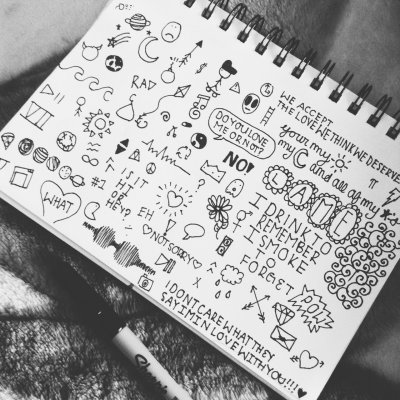 WE ACCEPT
THE LOVE WE THINK WE DESERVE
RAD
DO YOU LOVE
ME OR NOT?
your my
my C and all of my
π
NO!
GAME
I DRINK TO
REMEMBER
I SMOKE
TO
FORGET
VII
#1
IS IT
HEY?
EH
!
?
WHAT
NOT SORRY
POW
I DONT CARE WHAT THEY
SAY IM IN LOVE WITH YOU!!!
Sharpie